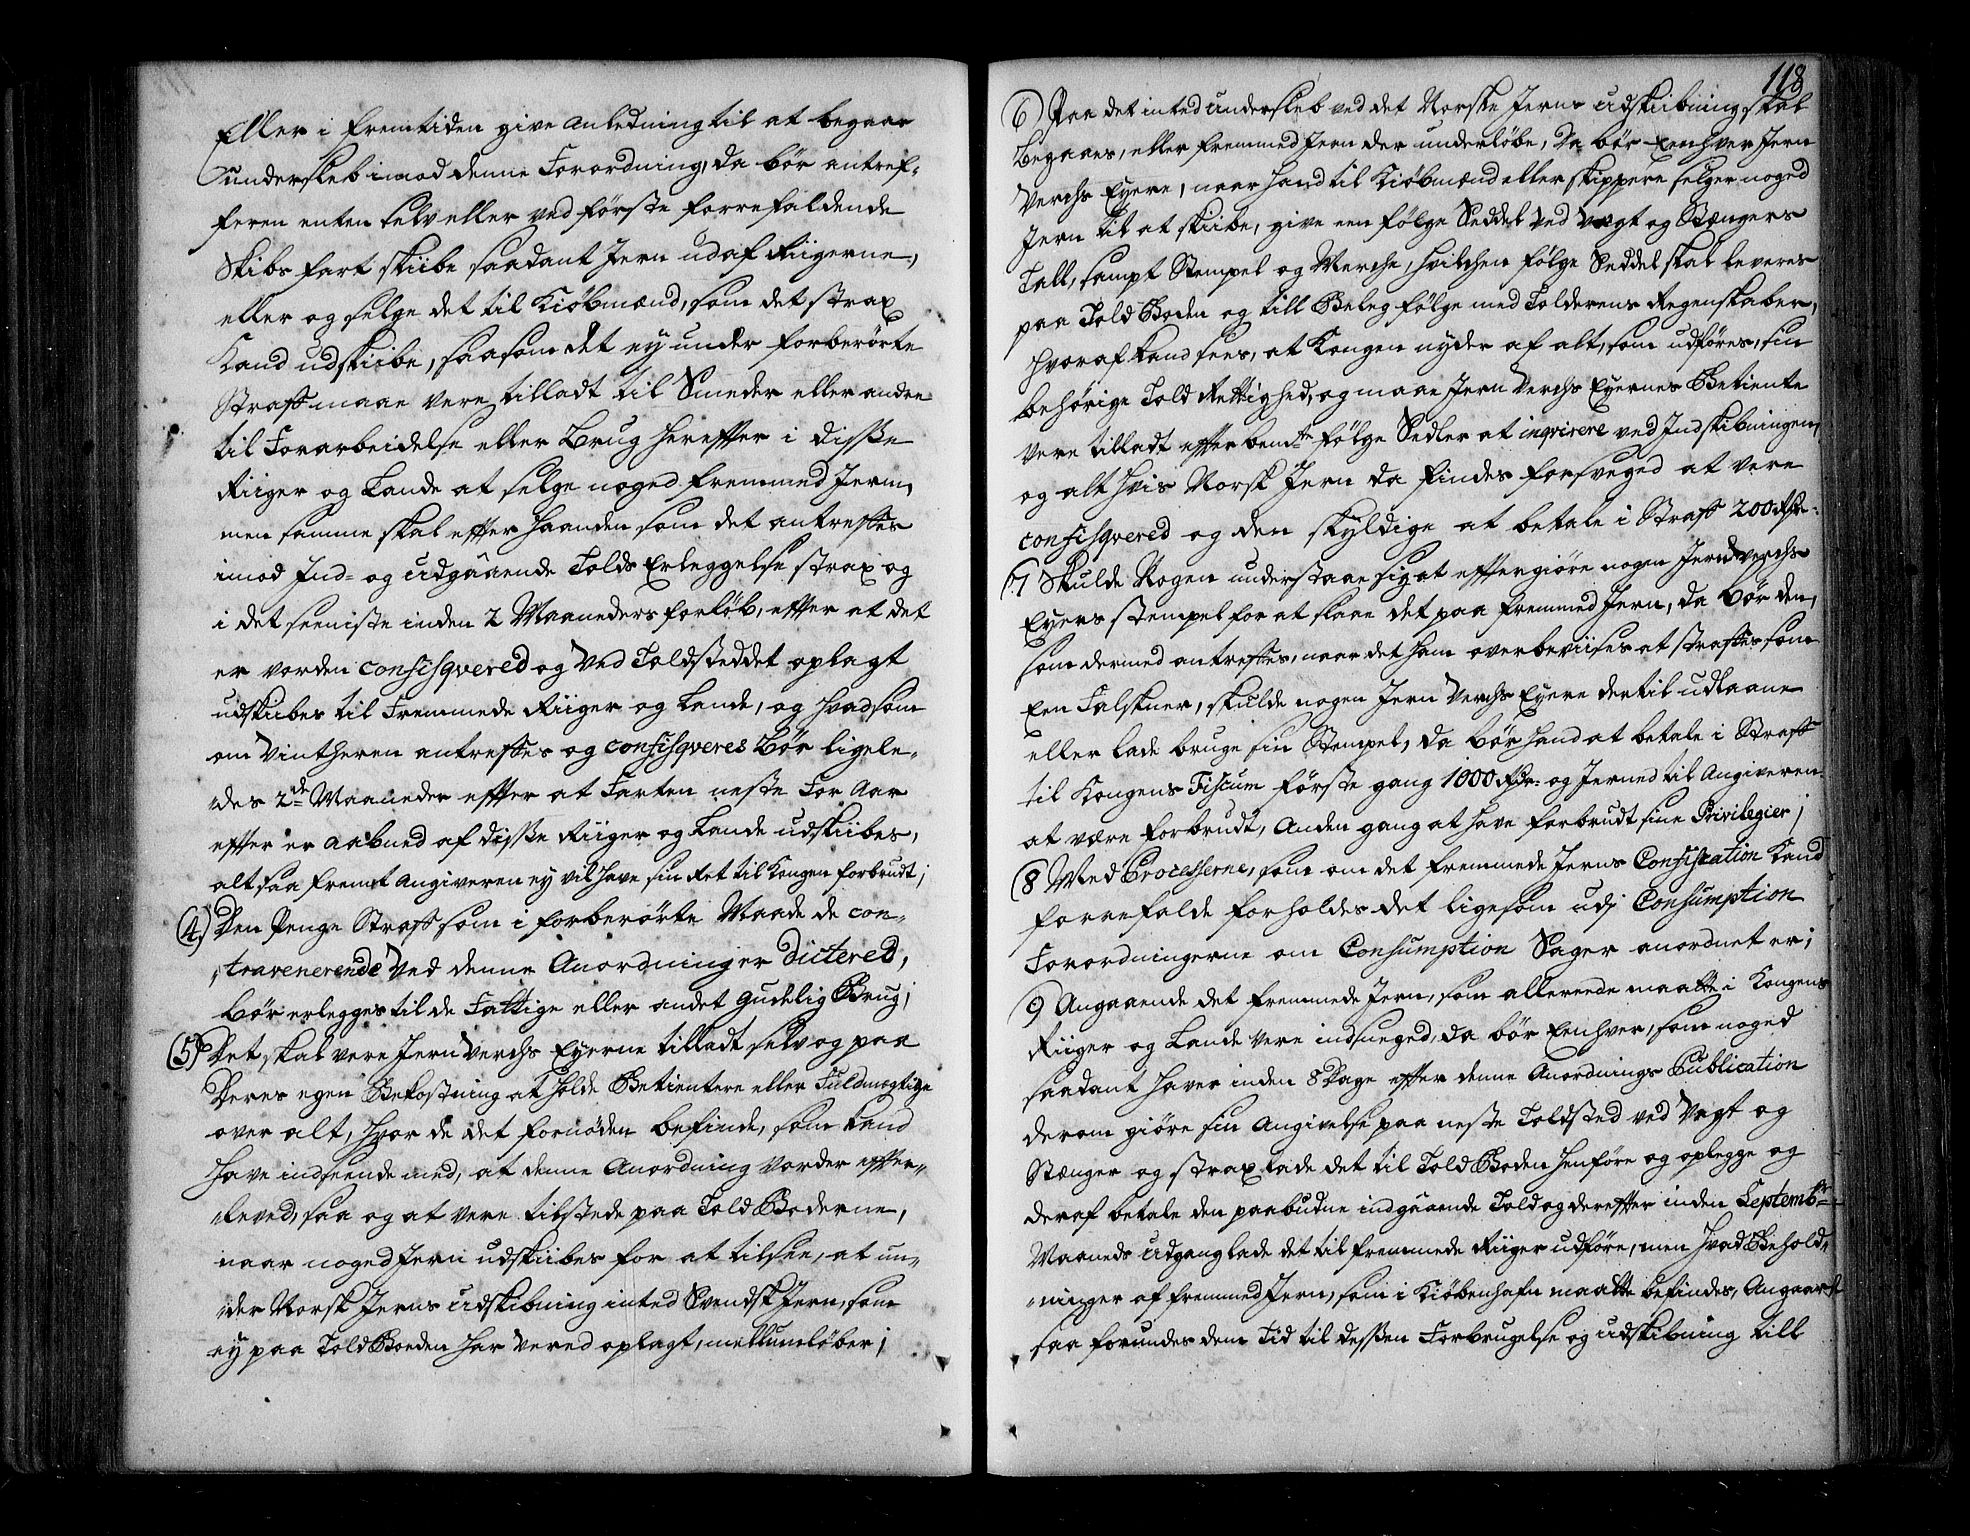 Eller i fremtiden give anledning til at begaae
underslæb imod denne Forordning, da bør antref-
feren enten selv eller ved første forrefaldende
Skibs fart skiibe saadant Jern ud af Riigerne,
eller og selge det til Kiøbmænd, som det strax
kand udskiibe, saasom det ey under forberørte
Straff maae vere tilladt til Smeder eller andre
til Forarbeidelse eller Brug hereffter i disse
Riiger og Lande at selge noged fremmed Jern,
men samme skal effter haanden som det antreffes
imod Ind- og Udgaaende Tolds Erleggelse strax og
i det seeniste inden 2 Maaneders forløb, effter at det
er vorden confisqvered og ved Toldstedet oplagt
udskiibes til Fremmede Riiger og Lande, og hvad som
om Vintheren antreffes og confisqveres Bør ligele-
des 2de Maaneder effter at Farten neste For Aar
effter er aabned af disse Riiger og Lande udskiibes,
alt saa fremt Angiveren ey vil have sin Ret til Kongen forbrudt;
4) Den Penge Straff som i forberørte Maade de con-
travenerende ved denne Anordning er dicteret,
Bør erlegges til de Fattige eller andet Gudelig Brug;
5) Det skal vere Jern Verchs Eyerne tilladt selv og paa
Deres egen Bekostning at holde Betientere eller Fuldmegtige
over alt, hvor de det fornøden befinde, som kand
have indseende med, at denne Anordning vorder effter-
leved, saa og at vere tilstede paa Told Boderne,
naar noged Jern udskiibes for at tilsee, at un-
der Norsk Jerns Udskibning inted Svendsk Jern, som
ey paa Told Boeden har vered oplagt, mellumløber;
118
6) Paa det inted Underslæb ved det Norske Jerns Udskiibning skal
begaaes, eller fremmed Jern der underløbe, Da bør Eenhver Jern
Verchs Eyere, naar hand til Kiøbmænd eller Skippere selger noged
Jern til at skiibe, give een følge Seddel ved Vegt og Stængers
Tall, sampt Stempel og Merche, hvilchen følge Seddel skal leveres
paa Told Boden og till Beleg følge med Tolderens Regenskaber,
hvoraf kand sees, at Kongen nyder af alt, som udføres, sin
behørige Told Rettighed, og maae Jern Verchs Eyernes Betiente
vere tilladt effter bemte følge Sedler at inqvirere ved Indskibningen,
og alt hvis Norsk Jern da findes forsveged at vere
confisqvered og den skyldige at betale i Straff 200 Rdr:
7) Skulde Nogen understaae sig at efftergiøre nogen Jern Verchs
Eyers stempel for at slaae det paa fremmed Jern, da bør den,
som dermed antreffes, naar det ham overbeviises at straffes som
Een Falskner, skulde nogen Jern Verchs Eyere dertil udlaane
eller lade bruge sin Stempel, da bør hand at betale i Straff
til Kongens Fiscum første gang 1000 Rdr: og Jerned til Angiveren
at være forbrudt, Anden gang at have forbrudt sine Privilegier;
8 Med Processerne, som om det fremmede Jerns Confiscation kand
forrefalde forholdes det ligesom udj Consumption
Forordningerne om Consumption Sager anordnet er;
9 Angaaende det fremmede Jern, som allereede maatte i Kongens
Riiger og Lande vere indsneged, da bør Eenhver, som noged
saadant haver inden 8 Dage effter denne Anordnings Publication
derom giøre sin Angivelse paa neste Toldsted ved Vegt og
Stænger og strax lade det til Told Boden henføre og oplegge og
deraf betale den paabudne indgaaende Told og dereffter inden Septembr
Maaneds Udgang lade det til fremmede Riiger udføre, men hvad Behold-
ninger af fremmed Jern, som i Kiøbenhafn maatte befindes, Angaar
saa forundes dem Tid til dessen Forbrugelse og Udskibning till